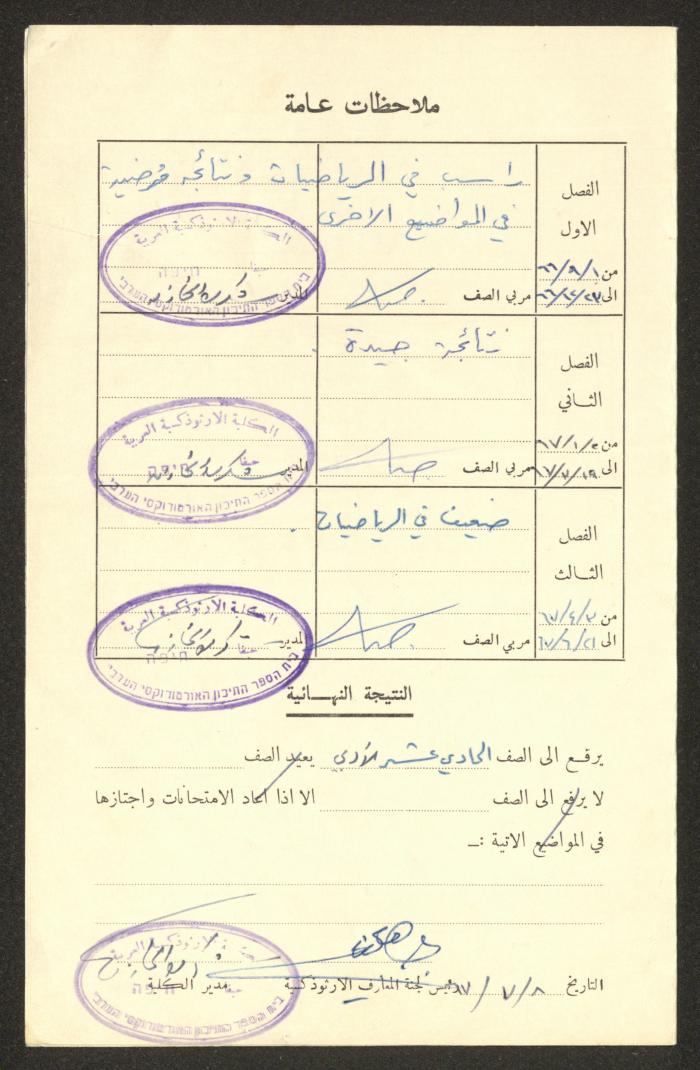 ملاحظات عامة
الفصل
الاول
راسب في الرياضيات ونتائجه مرضية
في المواضيع الاخرى
من ٦٦/٩/١
الى ٦٦/١٢/٢٣
مربي الصف
المدير
الكلية الارثوذكسية العربية
حيفا
חיפה
בית הספר התיכון האורטודוקסי הערבי
الفصل
الثاني
نتائجه جيدة .
من ٦٧/١/٢
الى
مربي الصف
المدير
الكلية الارثوذكسية العربية
حيفا
חיפה
בית הספר התיכון האורטודוקסי הערבי
الفصل
الثالث
ضعيف في الرياضيات .
من ٦٧/٤/٢
الى ٦٧/٦/٢١
مربي الصف
المدير
الكلية الارثوذكسية العربية
حيفا
חיפה
בית הספר התיכון האורטודוקסי הערבי
النتيجة النهـائية
يرفـع الى الصف الحادي عشر الأدبي يعيد الصف
لا يرفع الى الصف الا اذا اعاد الامتحانات واجتازها
في المواضيع الاتية :ـ
التاريخ ٦٧/٧/٨ رئيس لجنة المعارف الارثوذكسية مدير الكلية
الكلية الارثوذكسية العربية
حيفا
חיפה
בית הספר התיכון האורטודוקסי הערבי